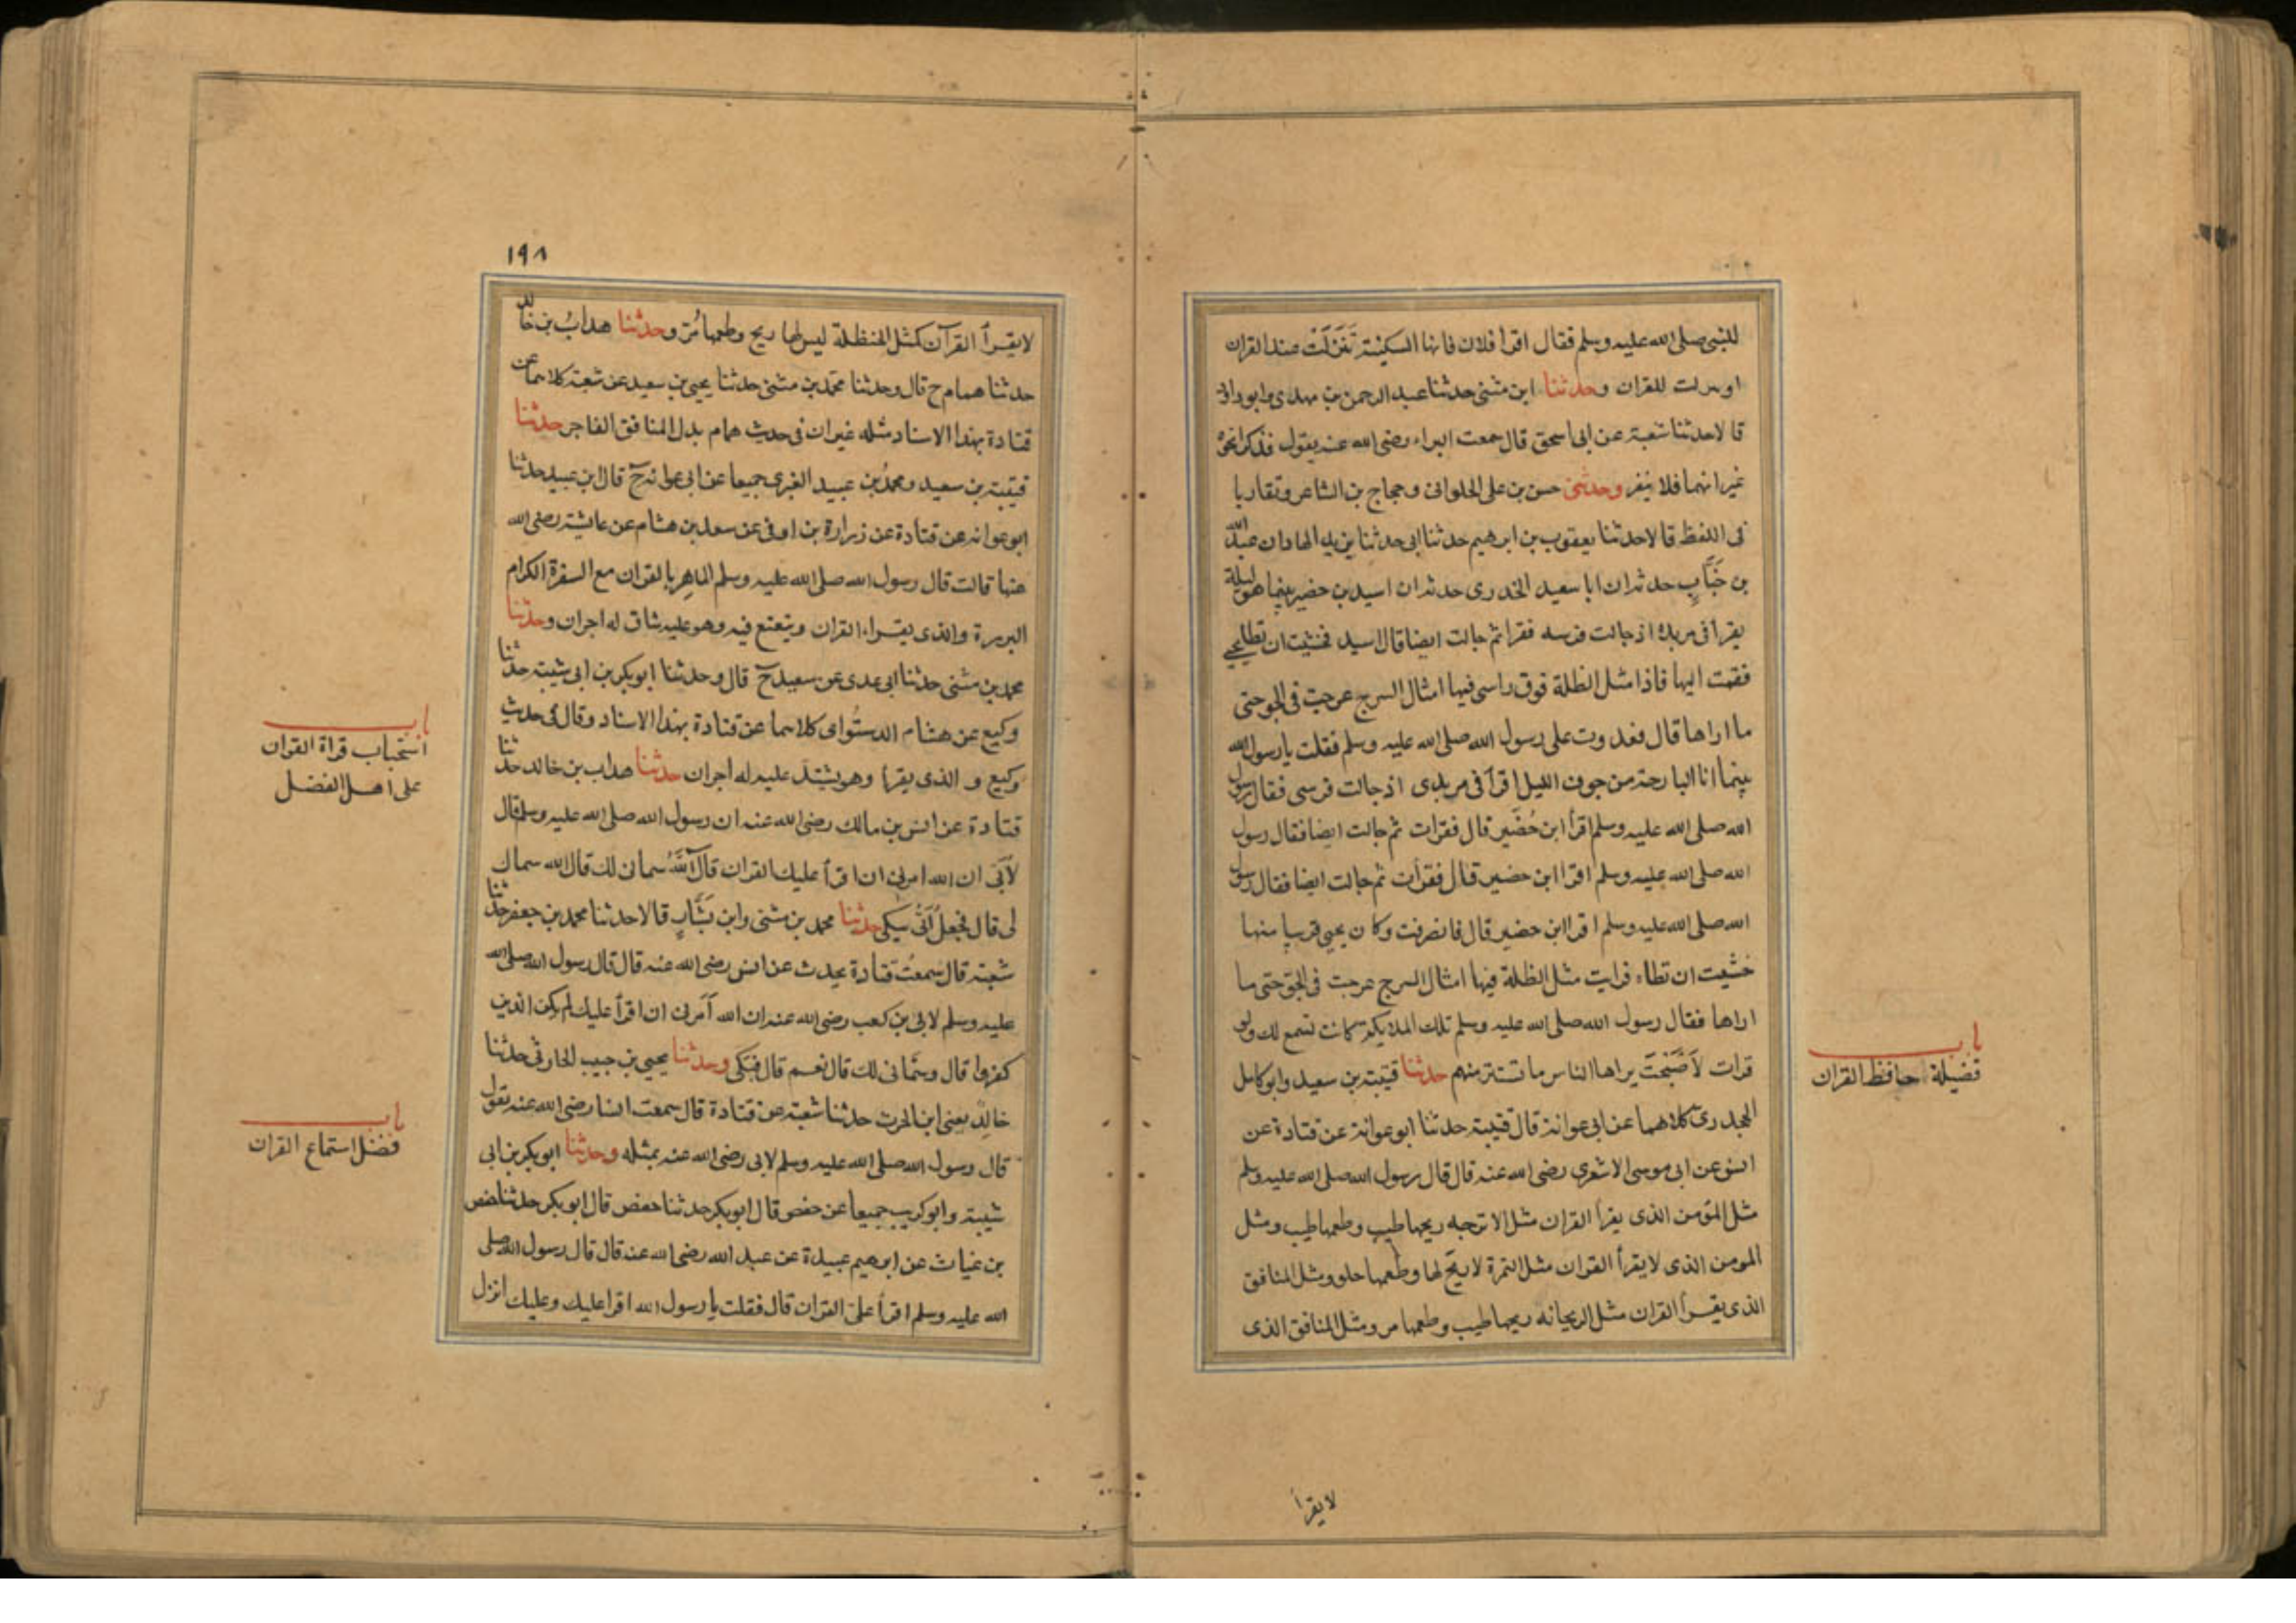 للنبى صلى الله عليه وسلم فقال اقرا فلان فانها السكينة تَنَزَّلَتْ عند القران
او للقران وحدثنا ابن مثنى حدثنا عبد الرحمن بن مهدى وابو داود
قالا حدثنا شعبة عن ابى اسحق قال سمعت البراء رضى الله عنه يقول فذكرا نحوه
غير انهما قالا ينفر وحدثنى حسن بن على الحلوانى وحجاج بن الشاعر وتقاربا
فى اللفظ قالا حدثنا يعقوب بن ابرهيم حدثنا ابى حدثنا يزيد الهاد ان عبد الله
بن خَبَّابٍ حدثه ان ابا سعيد الخدرى حدثه ان اسيد بن حضير بينما هو ليلة
يقرأ فى مربده اذ جالت فرسه فقرا ثم جالت ايضا قال اسيد فخشيت ان تطا يحيى
فقمت اليها فاذا مثل الظلة فوق راسى فيها امثال السرج عرجت فى الجو حتى
ما اراها قال فغدوت على رسول الله صلى الله عليه وسلم فقلت يا رسول الله
بينما انا البارحة من جوف الليل اقرأ فى مربدى اذ جالت فرسى فقال رسول
الله صلى الله عليه وسلم اقرأ ابن حُضَير قال فقرات ثم جالت ايضا فقال رسول
الله صلى الله عليه وسلم اقرا ابن حضير قال فقرأت ثم جالت ايضا فقال رسول
الله صلى الله عليه وسلم اقرا ابن حضير قال فانصرفت وكان يحيى قريبا منها
خشيت ان تطاه فرايت مثل الظلة فيها امثال السرج عرجت فى الجو حتى ما
اراها فقال رسول الله صلى الله عليه وسلم تلك الملايكة كانت تسمع لك ولو
قرات لأصْبَحَتْ يراها الناس ما تستتر منهم حدثنا قتيبة بن سعيد وابو كامل
الجحدرى كلاهما عن ابى عوانة قال قتيبة حدثنا ابو عوانة عن قتادة عن
انس عن ابى موسى الاشعرى رضى الله عنه قال قال رسول الله صلى الله عليه وسلم
مثل المؤمن الذى يقرأ القران مثل الاترجه ريحها طيب وطعمها طيب ومثل
المومن الذى لا يقرأ القران مثل التمرة لا ريح لها وطعمها حلو ومثل المنافق
الذى يقرأ القران مثل الريحانه ريحها طيب وطعمها مر ومثل المنافق الذى
باب
فضيلة حافظ القران
لا يقرأ
١٩٨
لا يقرأ القرآن كمثل الحنظلة ليس لها ريح وطعمها مُر وحدثنا هدابُ بن خالد
حدثنا همام ح قال وحدثنا محمد بن مثنى حدثنا يحيى بن سعيد عن شعبة كلاهما عن
قتادة بهذا الاسناد مثله غير ان فى حديث همام بدل المنافق الفاجر حدثنا
قتيبة بن سعيد ومحمدُ بن عبيد الغبرى جميعا عن ابى عوانه ح قال ابن عبيد حدثنا
ابو عوانه عن قتادة عن زرارة بن اوفى عن سعد بن هشام عن عايشة رضى الله
عنها قالت قال رسول الله صلى الله عليه وسلم الماهِر بالقران مع السفرة الكرام
البررة والذى يقراء القران ويتعتع فيه وهو عليه شاق له اجران وحدثنا
محمد بن مثنى حدثنا ابى عدى عن سعيد ح قال وحدثنا ابو بكر بن ابى شيبة حدثنا
وكيع عن هشام الدستُواى كلاهما عن قتادة بهذا الاسناد وقال فى حديث
وكيع و الذى يقرأ وهو يشتد عليه له اجران حدثنا هداب بن خالد حدثنا
قتادة عن انس بن مالك رضى الله عنه ان رسول الله صلى الله عليه وسلم قال
لأبَىّ ان الله امرنى ان اقرأ عليك القران قال آللهُ سمانى لك قال الله سماك
لى قال فجعلَ اُبَىُّ يبكى حدثنا محمد بن مثنى وابن بَشَّارٍ قالا حدثنا محمد بن جعفر حدثنا
شعبة قال سمعتُ قتادة يحدث عن انس رضى الله عنه قال قال رسول الله صلى الله
عليه وسلم لابى بن كعب رضى الله عنه ان الله أمرنى ان اقرأ عليك لم يكن الذين
كفروا قال وسَمّانى لك قال نعم قال فبَكَى وحدثنا يحيى بن حبيب الحارثى حدثنا
خالِدٌ يعنى ابن الحرث حدثنا شعبة عن قتادة قال سمعت انسا رضى الله عنه يقول
قال رسول الله صلى الله عليه وسلم لابى رضى الله عنه بمثله وحدثنا ابو بكر بن ابى
شيبة وابو كريب جميعا عن حفص قال ابو بكر حدثنا حفص قال ابو بكر حدثنا حفص
بن غياث عن ابرهيم عبيدة عن عبد الله رضى الله عنه قال قال رسول الله صلى
الله عليه وسلم اقرأ علىّ القران قال فقلت يا رسول الله اقرا عليك وعليك انزل
باب
استحباب قراة القران
على اهل الفضل
باب
فضل استماع القران